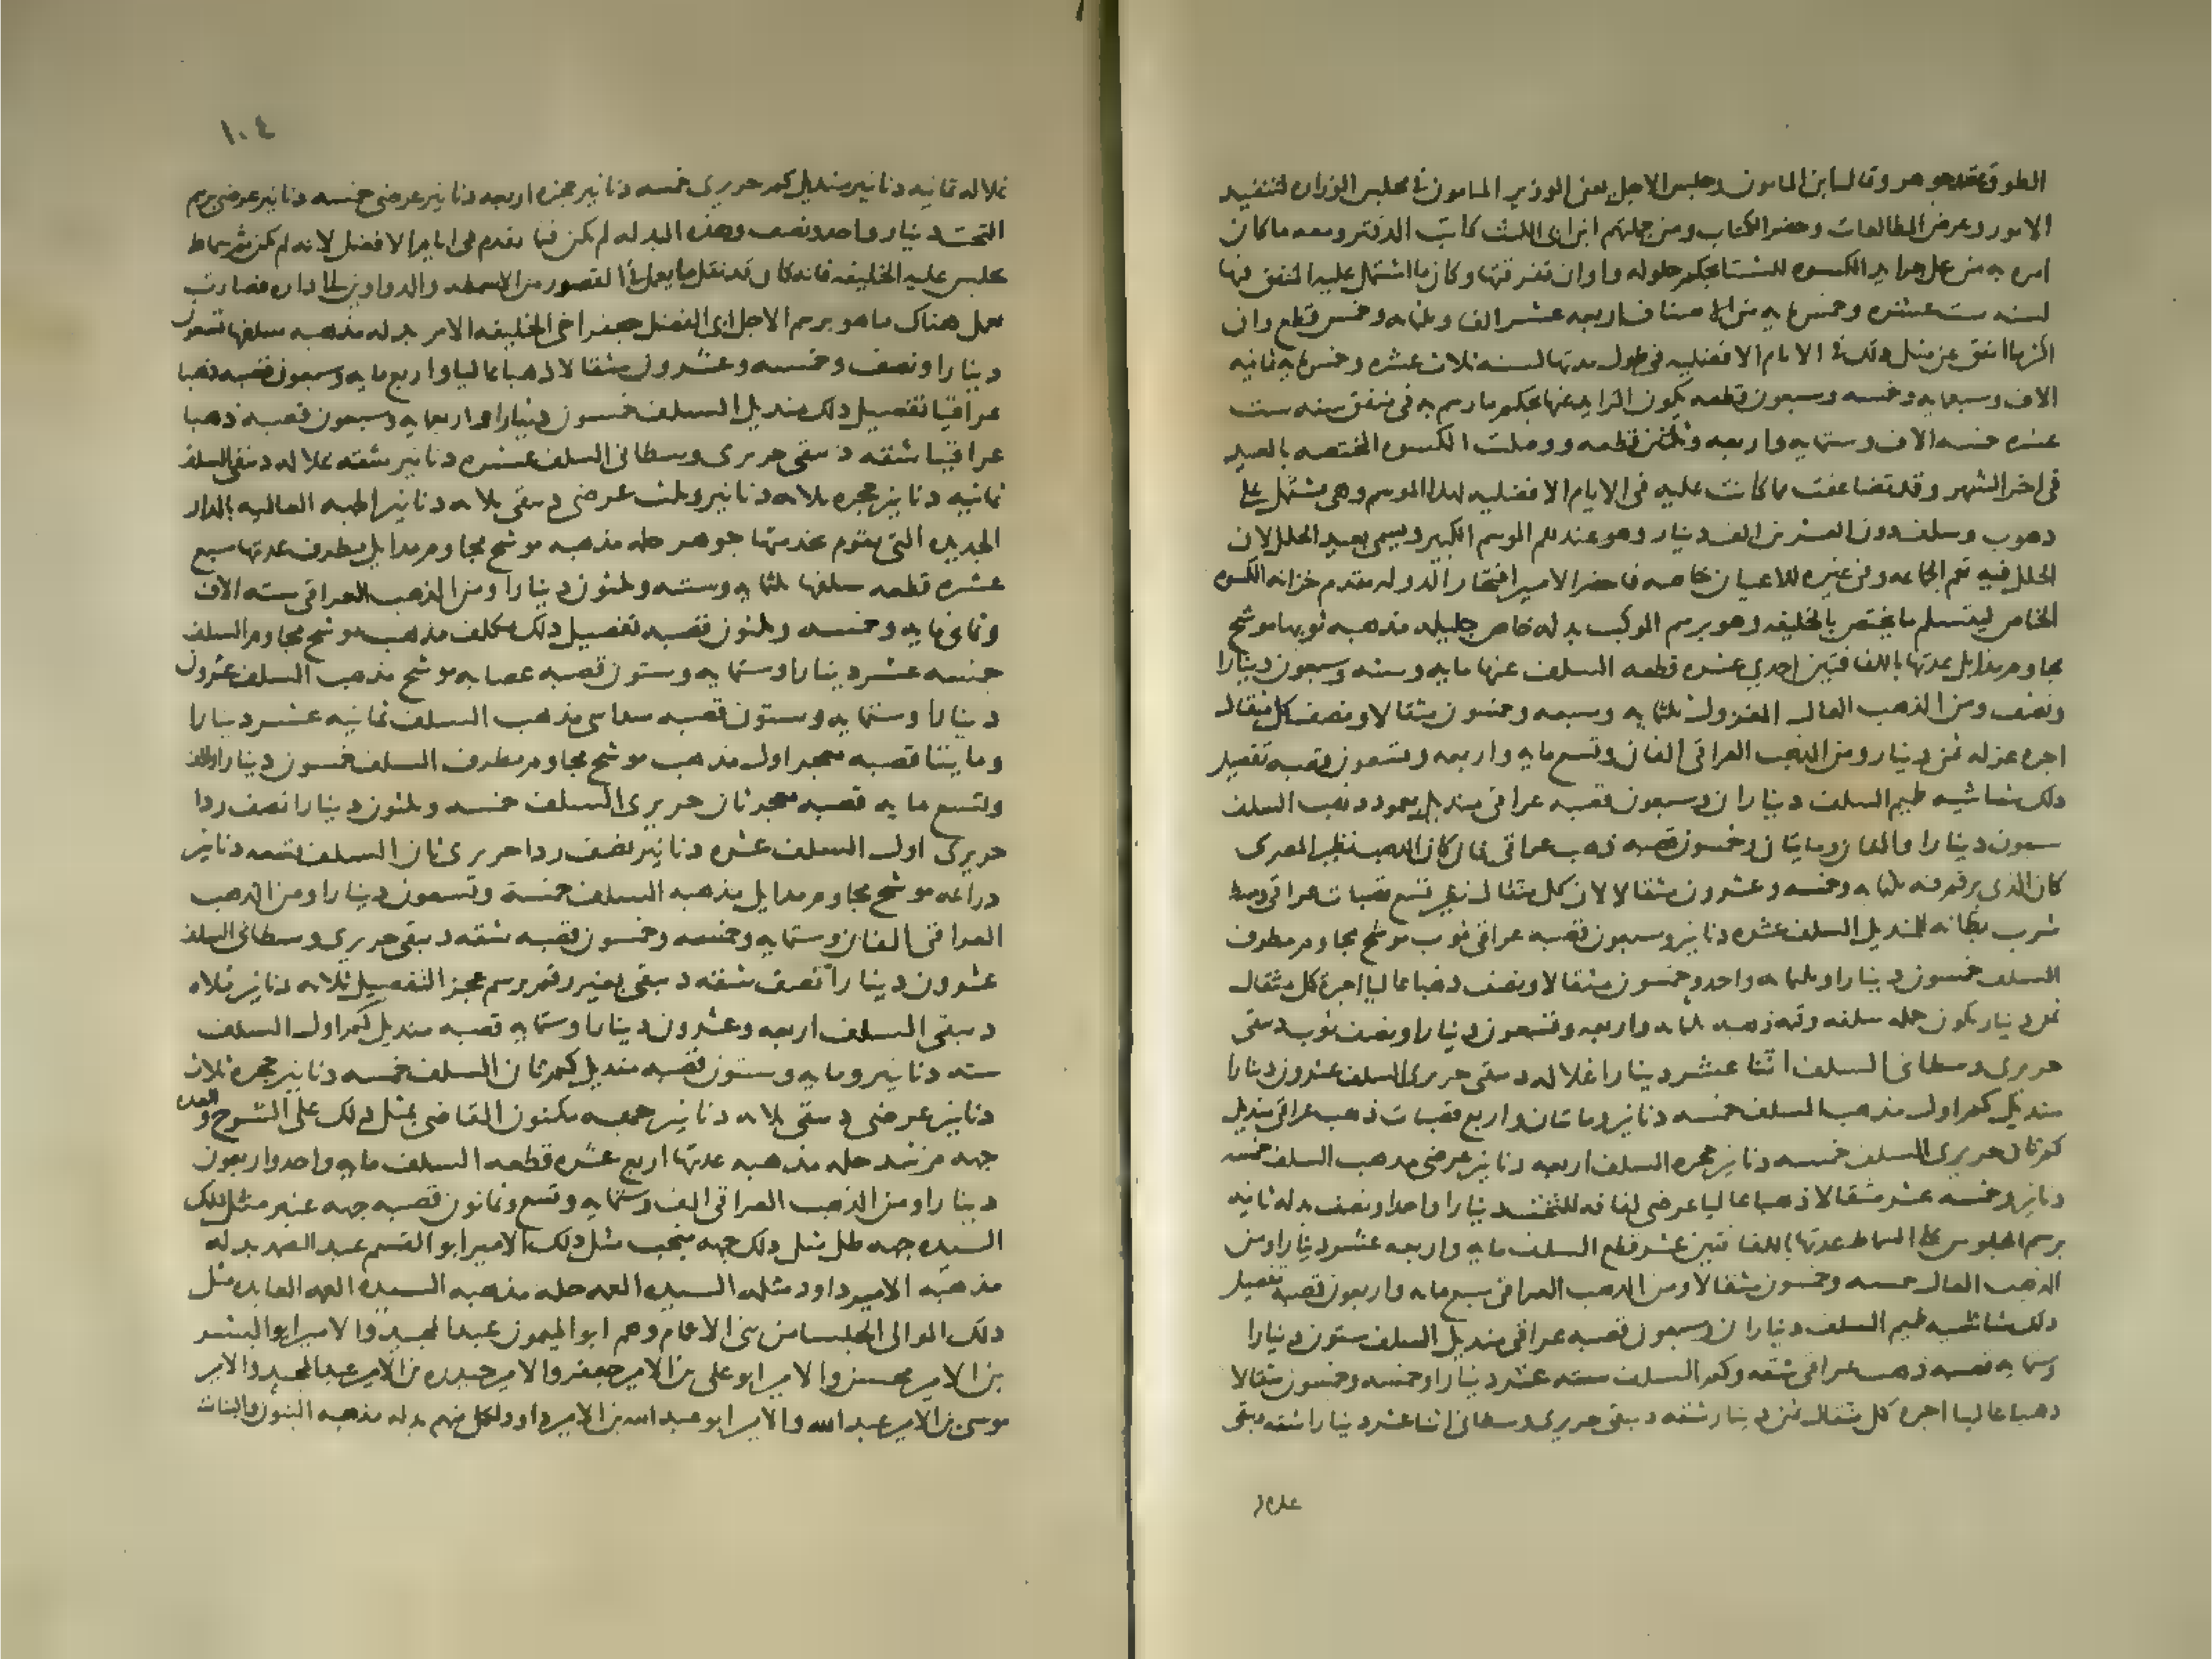 الطوق عقد جوهر وقال ابن المامون وجلس الاجل يعنى الوزير المامون فى مجلس الوزاره لتنفيذ
الامور وعرض المطالعات وحضر الكتاب ومن جملتهم ابن ابى الليث كاتب الدفتر ومعه ما كان
امر به من عمل جرايد الكسوه للشتا بحكم حلوله واوان تفرقتها وكان ما اشتمل عليه المنفق فيها
لسنه ست عشره وخمس مايه من الاصناف اربعه عشر الفا وثلثمايه وخمس قطع وان
اكثر ما انفق عن مثل ذلك فى الايام الافضليه فى طول مدتها لسنه ثلاث عشره وخمس مايه ثمانيه
الاف وسبعمايه وخمسه وسبعون قطعه يكون الزايد عنها بحكم ما رسم به فى منفق سنه ست
عشره خمسه الاف وستمايه واربعه وثلثين قطعه ووصلت الكسوه المختصه بالعيد
فى اخر الشهر وقد تضاعفت عما كانت عليه فى الايام الافضليه لهذا الموسم وهى مشتمل على
دهوب وسلف دون العشرين الف دينار وهو عندهم الموسم الكبير ويسمى بعيد الحلل لان
الحلل فيه تعم الجماعه وفى غيره للاعيان خاصه فاحضر الامير افتخار الدوله مقدم خزانه الكسوه
الخاص ليتسلم ما يختص بالخليفه وهو برسم الموكب بدله خاص جليله مذهبه ثوبها موشح
مجاوم مذايل عدتها باللفافتين احدى عشره قطعه السلف عنها مايه وسته وسبعون دينارا
ونصف ومن الذهب العالى المغزول ثلثمايه وسبعه وخمسون مثقالا ونصف كل مثقال
اجره غزله ثمن دينار ومن الذهب العراقى الفان وتسع مايه واربعه وتسعون قصبه تفصيل
ذلك شاشيه طميم السلف ديناران وسبعون قصبه عراقى منديل بعمود ذهب السلف
سبعون دينارا والفان ومايتان وخمسون قصبه ذهب عراقى فان كان الذهب نظير المصرى
كان الذى يرقم فيه ثلثمايه وخمسه وعشرون مثقالا لان كل مثقال نظير تسع قصبات عراقى وسط
شرب بطانه للمنديل السلف عشره دنانير وسبعون قصبه عراقى ثوب موشح مجاوم مطرف
السلف خمسون دينارا وثلثمايه واحد وخمسون مثقالا ونصف ذهبا عاليا اجره كل مثقال
ثمن دينار يكون جمله سلفه وقيمه ذهبه ثلثمايه واربعه وتسعون دينارا ونصف ثوب دبيقى
حريرى وسطانى السلف اثنا عشر دينارا غلاله دبيقى حريرى السلف عشرون دينارا
منديل كم اول مذهب السلف خمسه دنانير ومايتان واربع قصبات ذهب عراقى منديل
كم ثان حريرى السلف خمسه دنانير حجره السلف اربعه دنانير عرضى مذهب السلف خمسه
دنانير وخمسه عشر مثقالا ذهبا عاليا عرضى لفافه للتخت دينار واحد ونصف بدله ثانيه
برسم الجلوس على السماط عدتها باللفافتين عشر قطع السلف مايه واربعه عشر دينارا ومن
الذهب العالى خمسه وخمسون مثقالا ومن الذهب العراقى سبع مايه واربعون قصبه تفصيل
ذلك شاشيه طميم السلف ديناران وسبعون قصبه عراقى منديل السلف ستون دينارا
وستمايه قصبه ذهب عراقى شقه وكم السلف سته عشر دينارا وخمسه وخمسون مثقالا
ذهبا عاليا اجره كل مثقال ثمن دينار شقه دبيقى حريرى وسطانى اثنا عشر دينارا شقه دبيقى
١٠٤
غلاله ثمانيه دنانير منديل كم حريرى خمسه دنانير حجره اربعه دنانير عرضى خمسه دنانير عرضى برسم
التخت دينار واحد ونصف وهذه البدله لم يكن فيما تقدم فى ايام الافضل لانه لم يكن ثم سماط
يجلس عليه الخليفه فانه كان قد نقل ما يعمل فى القصور من الاسمطه والدواوين الى داره فصارت
يعمل هناك ما هو برسم الاجل ابى الفضل جعفر اخى الخليفه الامر بدله مذهبه سلفها تسعون
دينارا ونصف وخمسه وعشرون مثقالا ذهبا عاليا واربع مايه وسبعون قصبه ذهبا
عراقيا تفصيل ذلك منديل السلف خمسون دينارا واربعمايه وسبعون قصبه ذهبا
عراقيا شقه دبيقى حريرى وسطانى السلف عشره دنانير شقه غلاله دبيقى السلف
ثمانيه دنانير حجره ثلاثه دنانير وثلث عرضى دبيقى ثلاثه دنانير الجهه العاليه بالدار
الجديده التى يقوم بخدمتها جوهر حله مذهبه موشح مجاوم مذايل مطرف عدتها سبع
عشره قطعه سلفها ثلثمايه وسته وثلثون دينارا ومن الذهب العراقى سته الاف
وثمانى مايه وخمسه وثلثون قصبه تفصيل ذلك مكلف مذهب موشح مجاوم السلف
خمسه عشر دينارا وستمايه وستون قصبه عصابه موشح مذهب السلف عشرون
دينارا وستمايه وستون قصبه سداسى مذهب السلف ثمانيه عشر دينارا
ومايتا قصبه معجر اول مذهب موشح مجاوم مطرف السلف خمسون دينارا والف
وتسع مايه قصبه معجر ثان حريرى السلف خمسه وثلثون دينارا نصف ردا
حريرى اول السلف عشره دنانير نصف ردا حريرى ثان السلف تسعه دنانير
دراعه موشح مجاوم مذايل مذهبه السلف خمسة وتسعون دينارا ومن الذهب
العراقى الفان وستمايه وخمسه وخمسون قصبه شقه دبيقى حريرى وسطانى السلف
عشرون دينارا نصف شقه دبيقى بغير رقم برسم عجز التفصيل ثلاثه دنانير ملاه
دبيقى السلف اربعه وعشرون دينارا وستمايه قصبه منديل كم اول السلف
سته دنانير ومايه وستون قصبه منديل كم ثان السلف خمسه دنانير حجره ثلاث
دنانير عرضى دبيقى ثلاثه دنانير جهه مكنون القاضى بمثل ذلك على الشرح والعده
جهه مرشد حله مذهبه عدتها اربع عشره قطعه السلف مايه واحد واربعون
دينارا ومن الذهب العراقى الف وستمايه وتسع وثمانون قصبه جهه عنبر مثل ذلك
السيده جهه ظل مثل ذلك جهه منجب مثل ذلك الامير ابو القسم عبد الصمد بدله
مذهبه الامير داود مثله السيده العمه حله مذهبه السيده العمه العابده مثل
ذلك الموالى الجلسا من بنى الاعمام وهم ابو الميمون عبد المجيد والامير ابو اليسر
بن الامير محسن والامير ابو على بن الامير جعفر والامير حيدره بن الامير عبد المجيد والامير
موسى بن الامير عبد الله والامير ابو عبد الله بن الامير داود ولكل منهم بدله مذهبه البنون والبنات